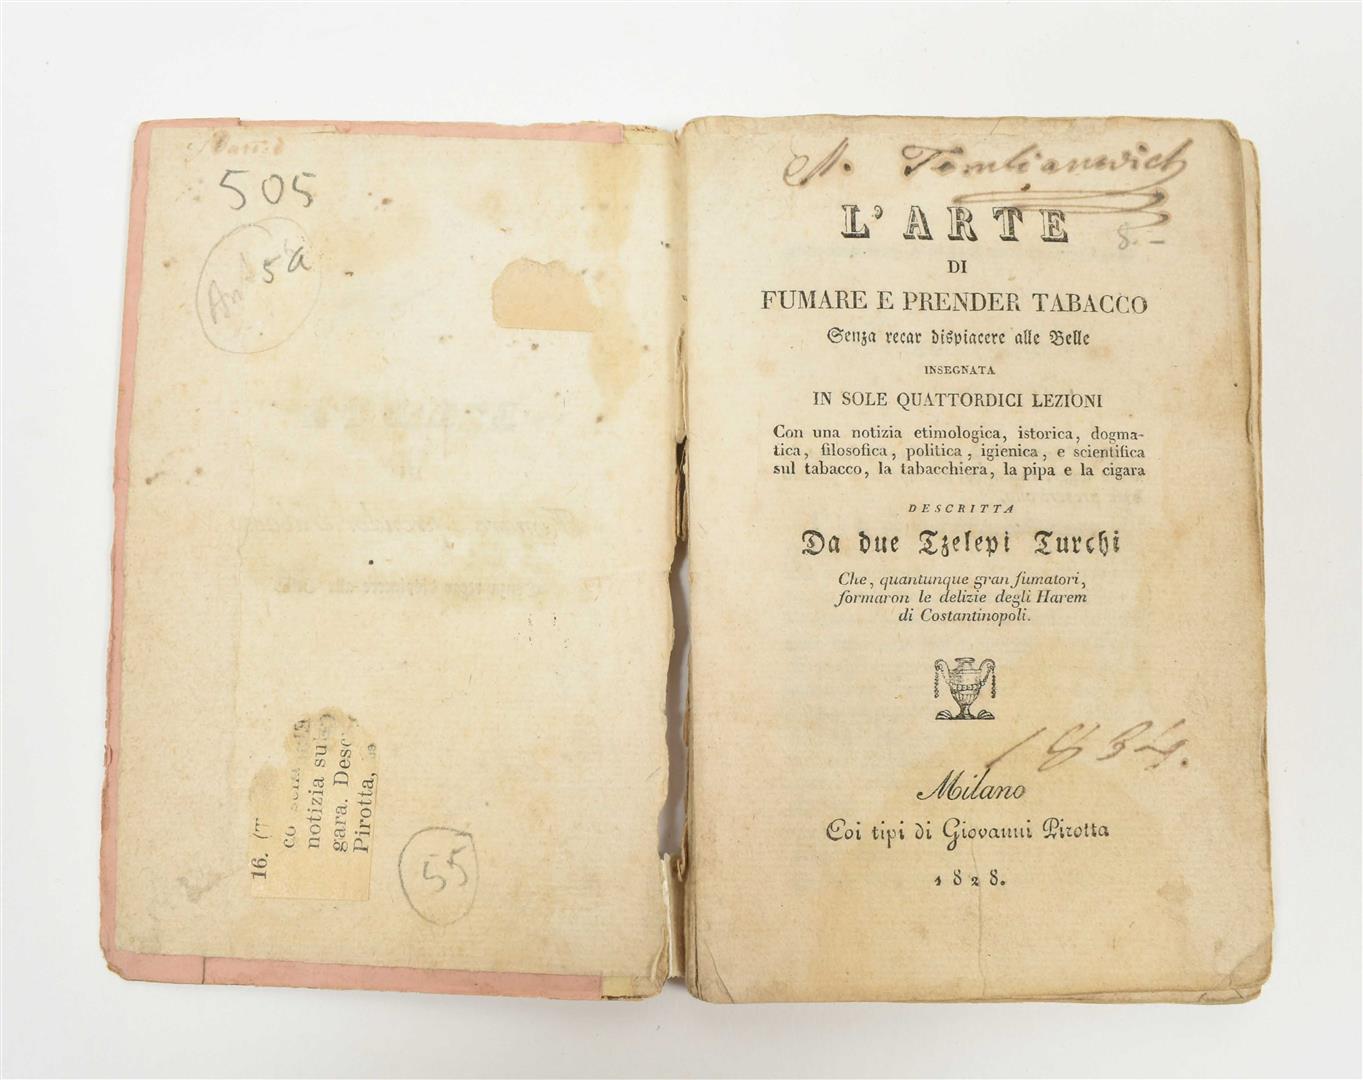 505
5a
16.
notizia su
gara. Desc
Pirotta,
55
L'ARTE
DI
FUMARE E PRENDER TABACCO
Senza recar dispiacere alle Belle
INSEGNATA
IN SOLE QUATTORDICI LEZIONI
Con una notizia etimologica, istorica, dogma-
tica, filosofica, politica, igienica, e scientifica
sul tabacco, la tabacchiera, la pipa e la cigara
DESCRITTA
Da due Tzelepi Turchi
Che, quantunque gran fumatori,
formaron le delizie degli Harem
di Costantinopoli.
1834.
Milano
Coi tipi di Giovanni Pirotta
1828.